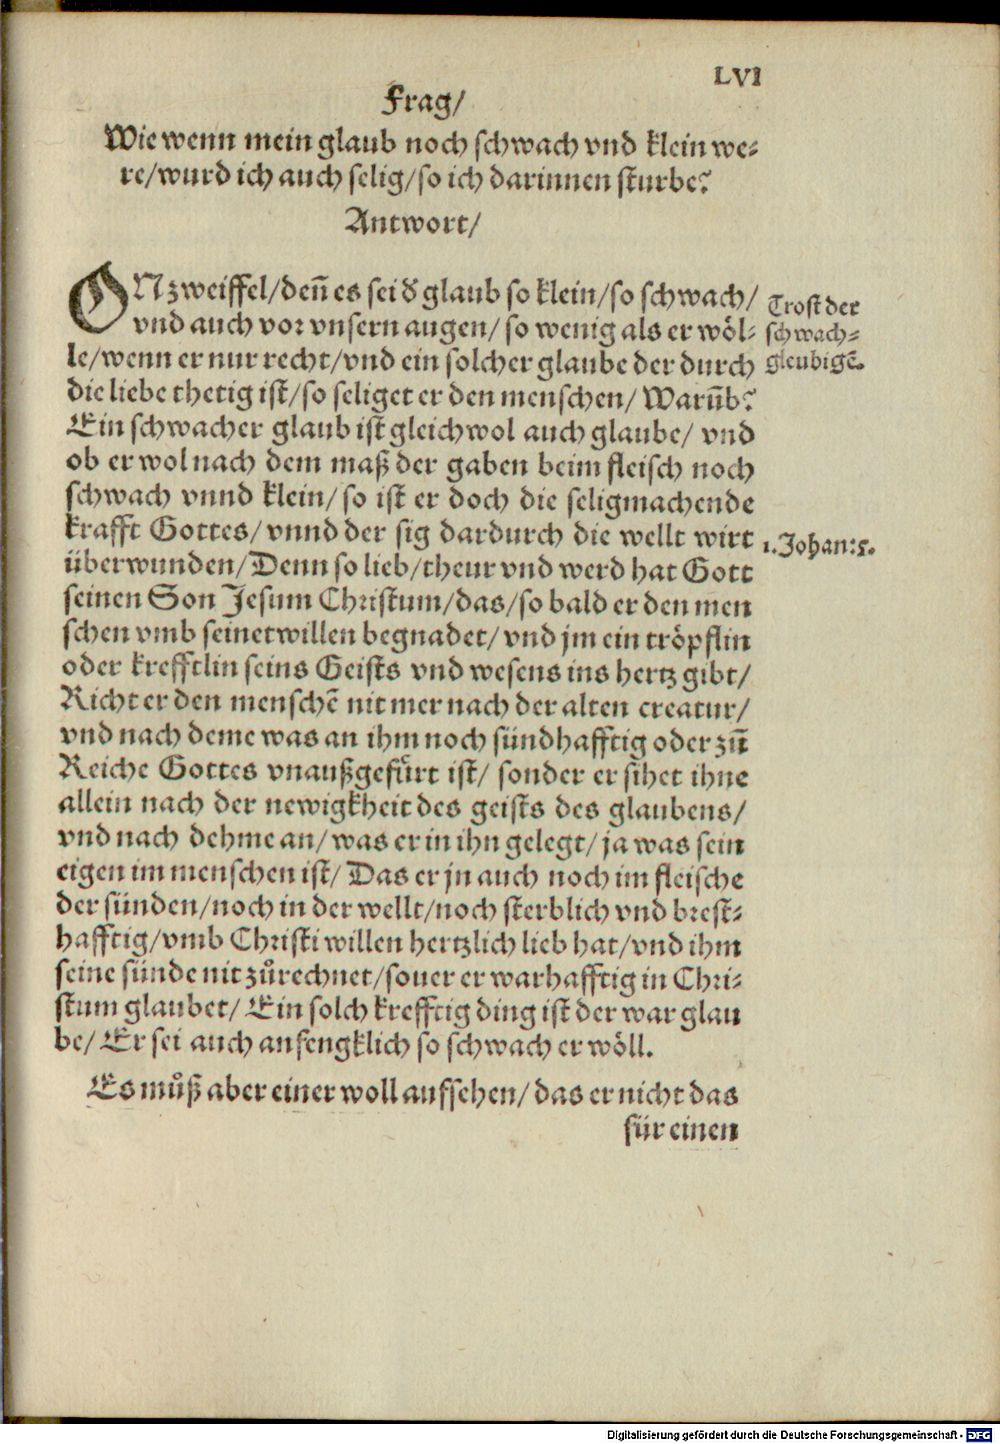 LVI
Frag/
Wie wenn mein glaub noch schwach vnd klein we⸗
re/wurd ich auch selig/so ich darinnen sturbe?
Antwort/
ONzweiffel/deñ es sei d̕ glaub so klein/so schwach/
vnd auch vor vnsern augen/ so wenig als er wöl⸗
le/wenn er nur recht/vnd ein solcher glaube der durch
die liebe thetig ist/so seliget er den menschen/ Warum̃b?
Ein schwacher glaub ist gleichwol auch glaube/ vnd
ob er wol nach dem maß der gaben beim fleisch noch
schwach vnnd klein/ so ist er doch die seligmachende
krafft Gottes/ vnnd der sig dardurch die wellt wirt
überwunden/ Denn so lieb/theur vnd werd hat Gott
seinen Son Jesum Christum/das/so bald er den men
schen vmb seinetwillen begnadet/ vnd jm ein tröpflin
oder krefftlin seins Geists vnd wesens ins hertz gibt/
Richt er den menschẽ nit mer nach der alten creatur/
vnd nach deme was an ihm noch sündhafftig oder zũ
Reiche Gottes vnaußgefůrt ist/ sonder er sihet ihne
allein nach der newigkheit des geists des glaubens/
vnd nach dehme an/ was er in ihn gelegt/ ja was sein
eigen im menschen ist/ Das er jn auch noch im fleische
der sünden/noch in der wellt/noch sterblich vnd brest⸗
hafftig/vmb Christi willen hertzlich lieb hat/vnd ihm
seine sünde nit zůrechnet/souer er warhafftig in Chri⸗
stum glaubet/ Ein solch krefftig ding ist der war glau
be/ Er sei auch anfengklich so schwach er wöll.
Es můß aber einer woll aufsehen/ das er nicht das
für einen
Trost der
schwach⸗
gleubigẽ.
1. Johan: 5.
Digitalisierung gefördert durch die Deutsche Forschungsgemeinschaft - DFG